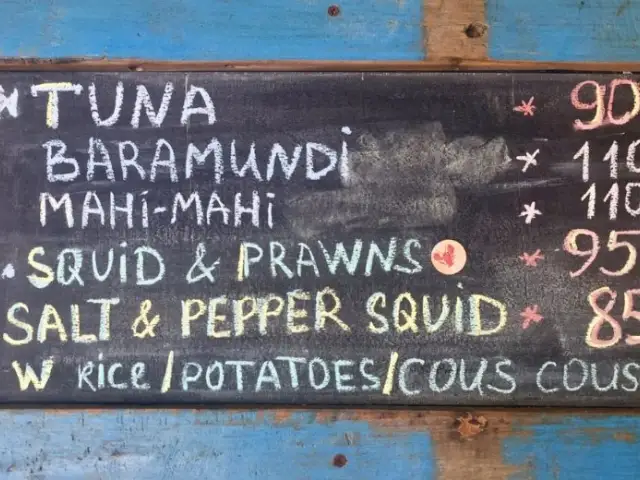 * TUNA * 90
BARAMUNDI * 110
MAHI-MAHI * 110
SQUID & PRAWNS * 95
SALT & PEPPER SQUID * 85
W RICE/POTATOES/COUS COUS